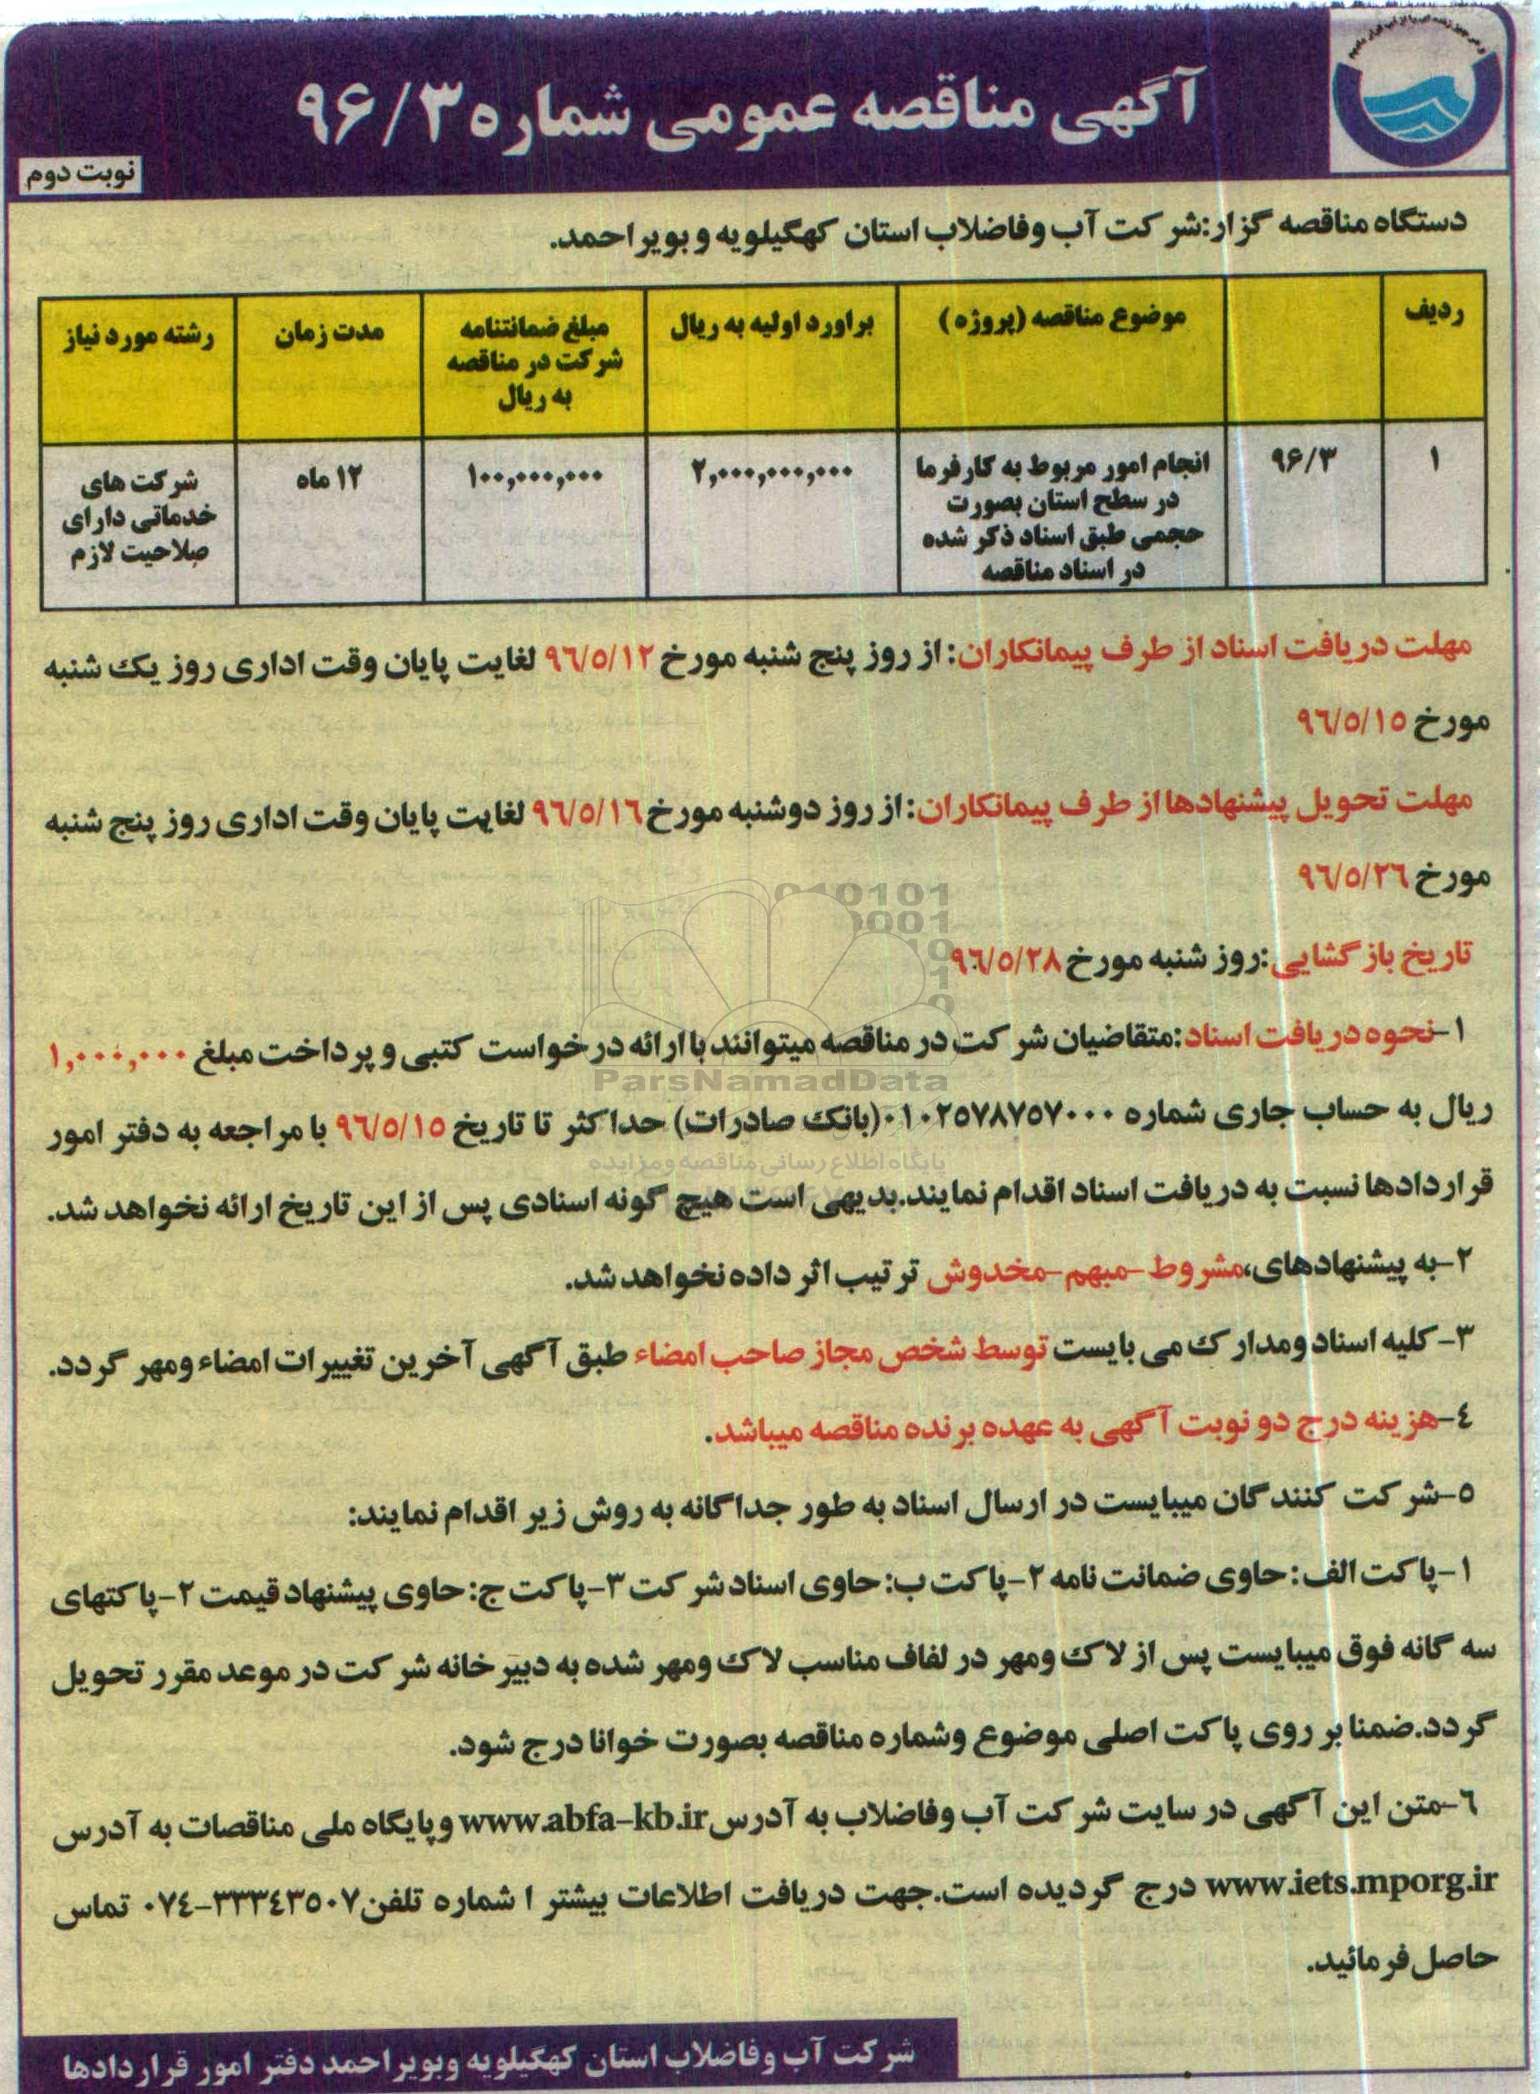 و من الماء کل شیء حی
آگهی مناقصه عمومی شماره ۹۶/۳
نوبت دوم
دستگاه مناقصه گزار:شرکت آب وفاضلاب استان کهگیلویه و بویراحمد.
ردیف
موضوع مناقصه (پروژه)
براورد اولیه به ریال
مبلغ ضمانتنامه شرکت در مناقصه به ریال
مدت زمان
رشته مورد نیاز
۱
۹۶/۳
انجام امور مربوط به کارفرما
در سطح استان بصورت
حجمی طبق اسناد ذکر شده
در اسناد مناقصه
۲,۰۰۰,۰۰۰,۰۰۰
۱۰۰,۰۰۰,۰۰۰
۱۲ ماه
شرکت های
خدماتی دارای
صلاحیت لازم
مهلت دریافت اسناد از طرف پیمانکاران: از روز پنج شنبه مورخ ۹٦/٥/۱۲ لغایت پایان وقت اداری روز یک شنبه
مورخ ۹٦/٥/۱٥
مهلت تحویل پیشنهادها از طرف پیمانکاران: از روز دوشنبه مورخ ۹٦/٥/۱٦ لغایت پایان وقت اداری روز پنج شنبه
مورخ ۹٦/٥/۲٦
تاریخ بازگشایی:روز شنبه مورخ ۹٦/٥/۲۸
۱-نحوه دریافت اسناد:متقاضیان شرکت در مناقصه میتوانند با ارائه درخواست کتبی و پرداخت مبلغ ۱,۰۰۰,۰۰۰
ریال به حساب جاری شماره ۰۱۰۲٥۷۸۷٥۷۰۰۰(بانک صادرات) حداکثر تا تاریخ ۹٦/٥/۱٥ با مراجعه به دفتر امور
قراردادها نسبت به دریافت اسناد اقدام نمایند.بدیهی است هیچ گونه اسنادی پس از این تاریخ ارائه نخواهد شد.
۲-به پیشنهادهای،مشروط -مبهم-مخدوش ترتیب اثر داده نخواهد شد.
۳- کلیه اسناد ومدارک می بایست توسط شخص مجاز صاحب امضاء طبق آگهی آخرین تغییرات امضاء ومهر گردد.
٤-هزینه درج دو نوبت آگهی به عهده برنده مناقصه میباشد.
٥-شرکت کنندگان میبایست در ارسال اسناد به طور جداگانه به روش زیر اقدام نمایند:
۱-پاکت الف: حاوی ضمانت نامه ۲-پاکت ب: حاوی اسناد شرکت ۳-پاکت ج: حاوی پیشنهاد قیمت ۲-پاکتهای
سه گانه فوق میبایست پس از لاک ومهر در لفاف مناسب لاک ومهر شده به دبیرخانه شرکت در موعد مقرر تحویل
گردد.ضمنا بر روی پاکت اصلی موضوع وشماره مناقصه بصورت خوانا درج شود.
٦-متن این آگهی در سایت شرکت آب وفاضلاب به آدرس www.abfa-kb.ir و پایگاه ملی مناقصات به آدرس
www.iets.mporg.ir درج گردیده است.جهت دریافت اطلاعات بیشتر ا شماره تلفن ۳۳۳٤۳٥۰۷-۰۷٤ تماس
حاصل فرمائید.
شرکت آب وفاضلاب استان کهگیلویه وبویراحمد دفتر امور قراردادها
ParsNamadData
پایگاه اطلاع رسانی مناقصه و مزایده